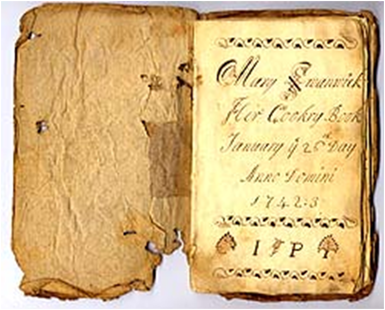 Mary Swanwick
Her Cookry Book
January ye 20th Day
Anno Domini
1742-3
I P